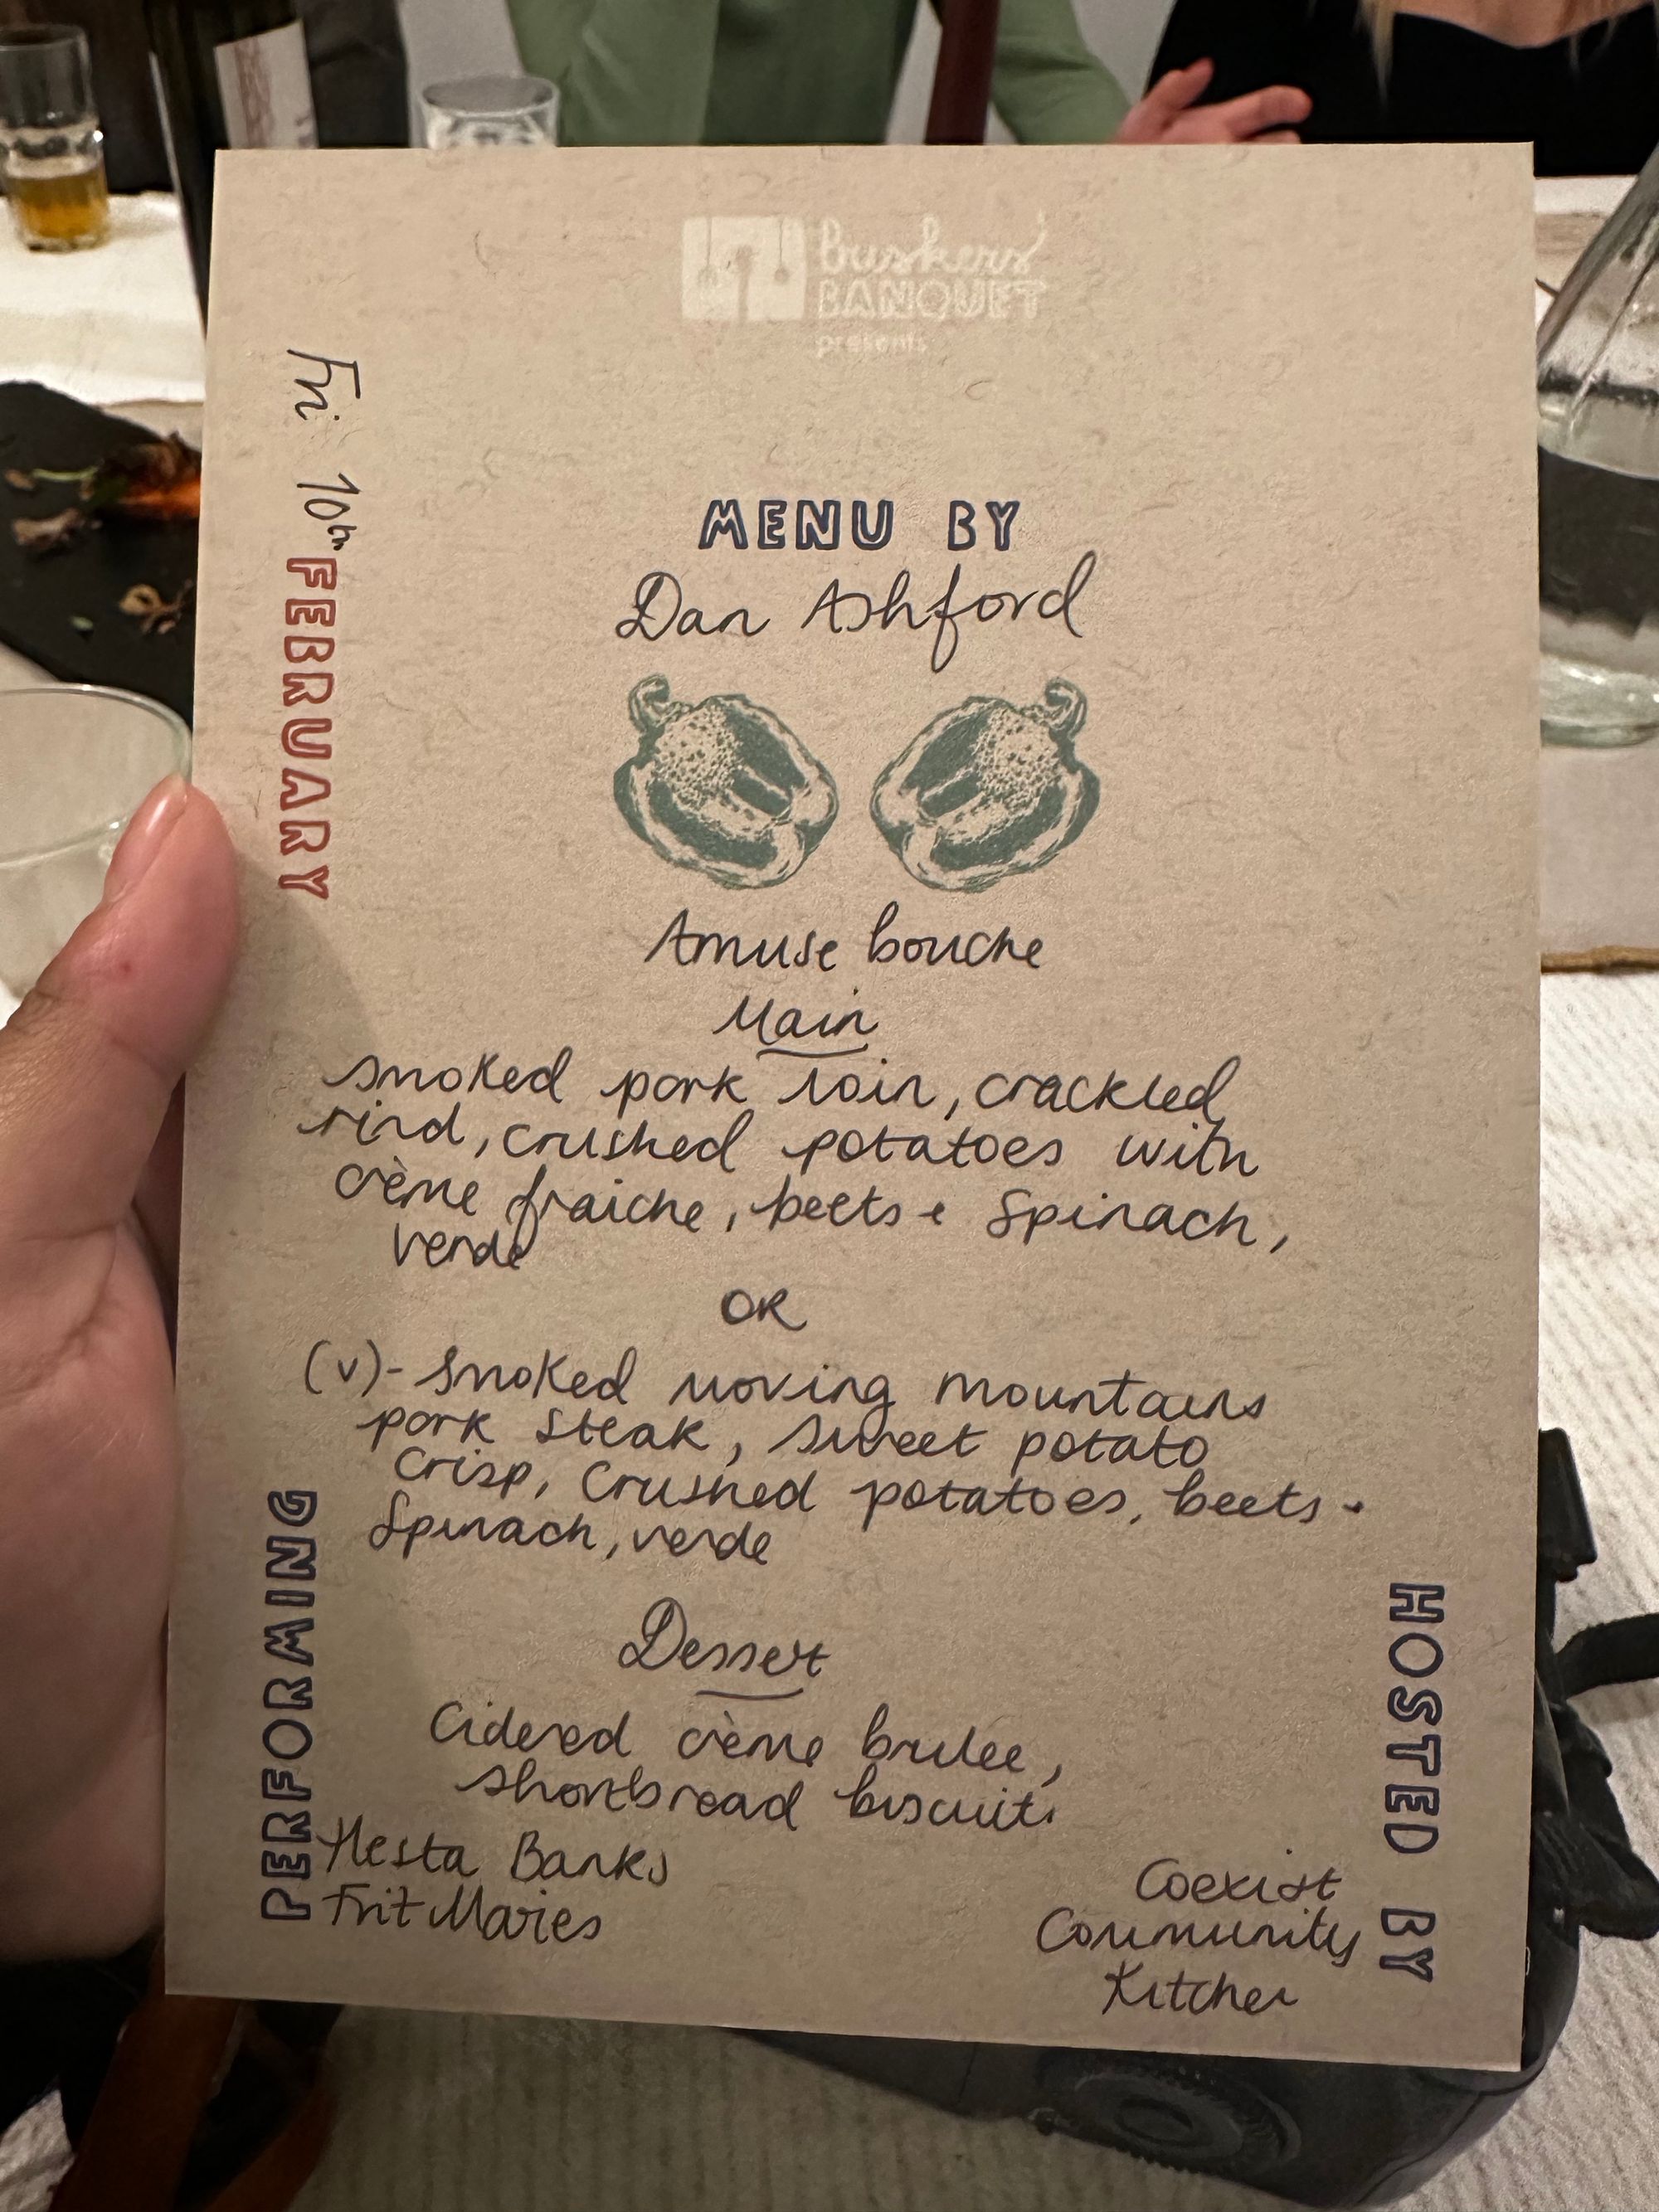 buskers'
BANQUET
presents
Fri 10th FEBRUARY
MENU BY
Dan Ashford
Amuse bouche
Main
smoked pork loin, crackled
rind, crushed potatoes with
crème fraiche, beets + Spinach,
verde
OR
(v)- Smoked moving mountains
pork steak, sweet potato
crisp, crushed potatoes, beets +
Spinach, verde
Dessert
Cidered crème brulee,
shortbread biscuit
PERFORMING
Hesta Banks
Frit Maries
HOSTED BY
Coexist
Community
Kitchen